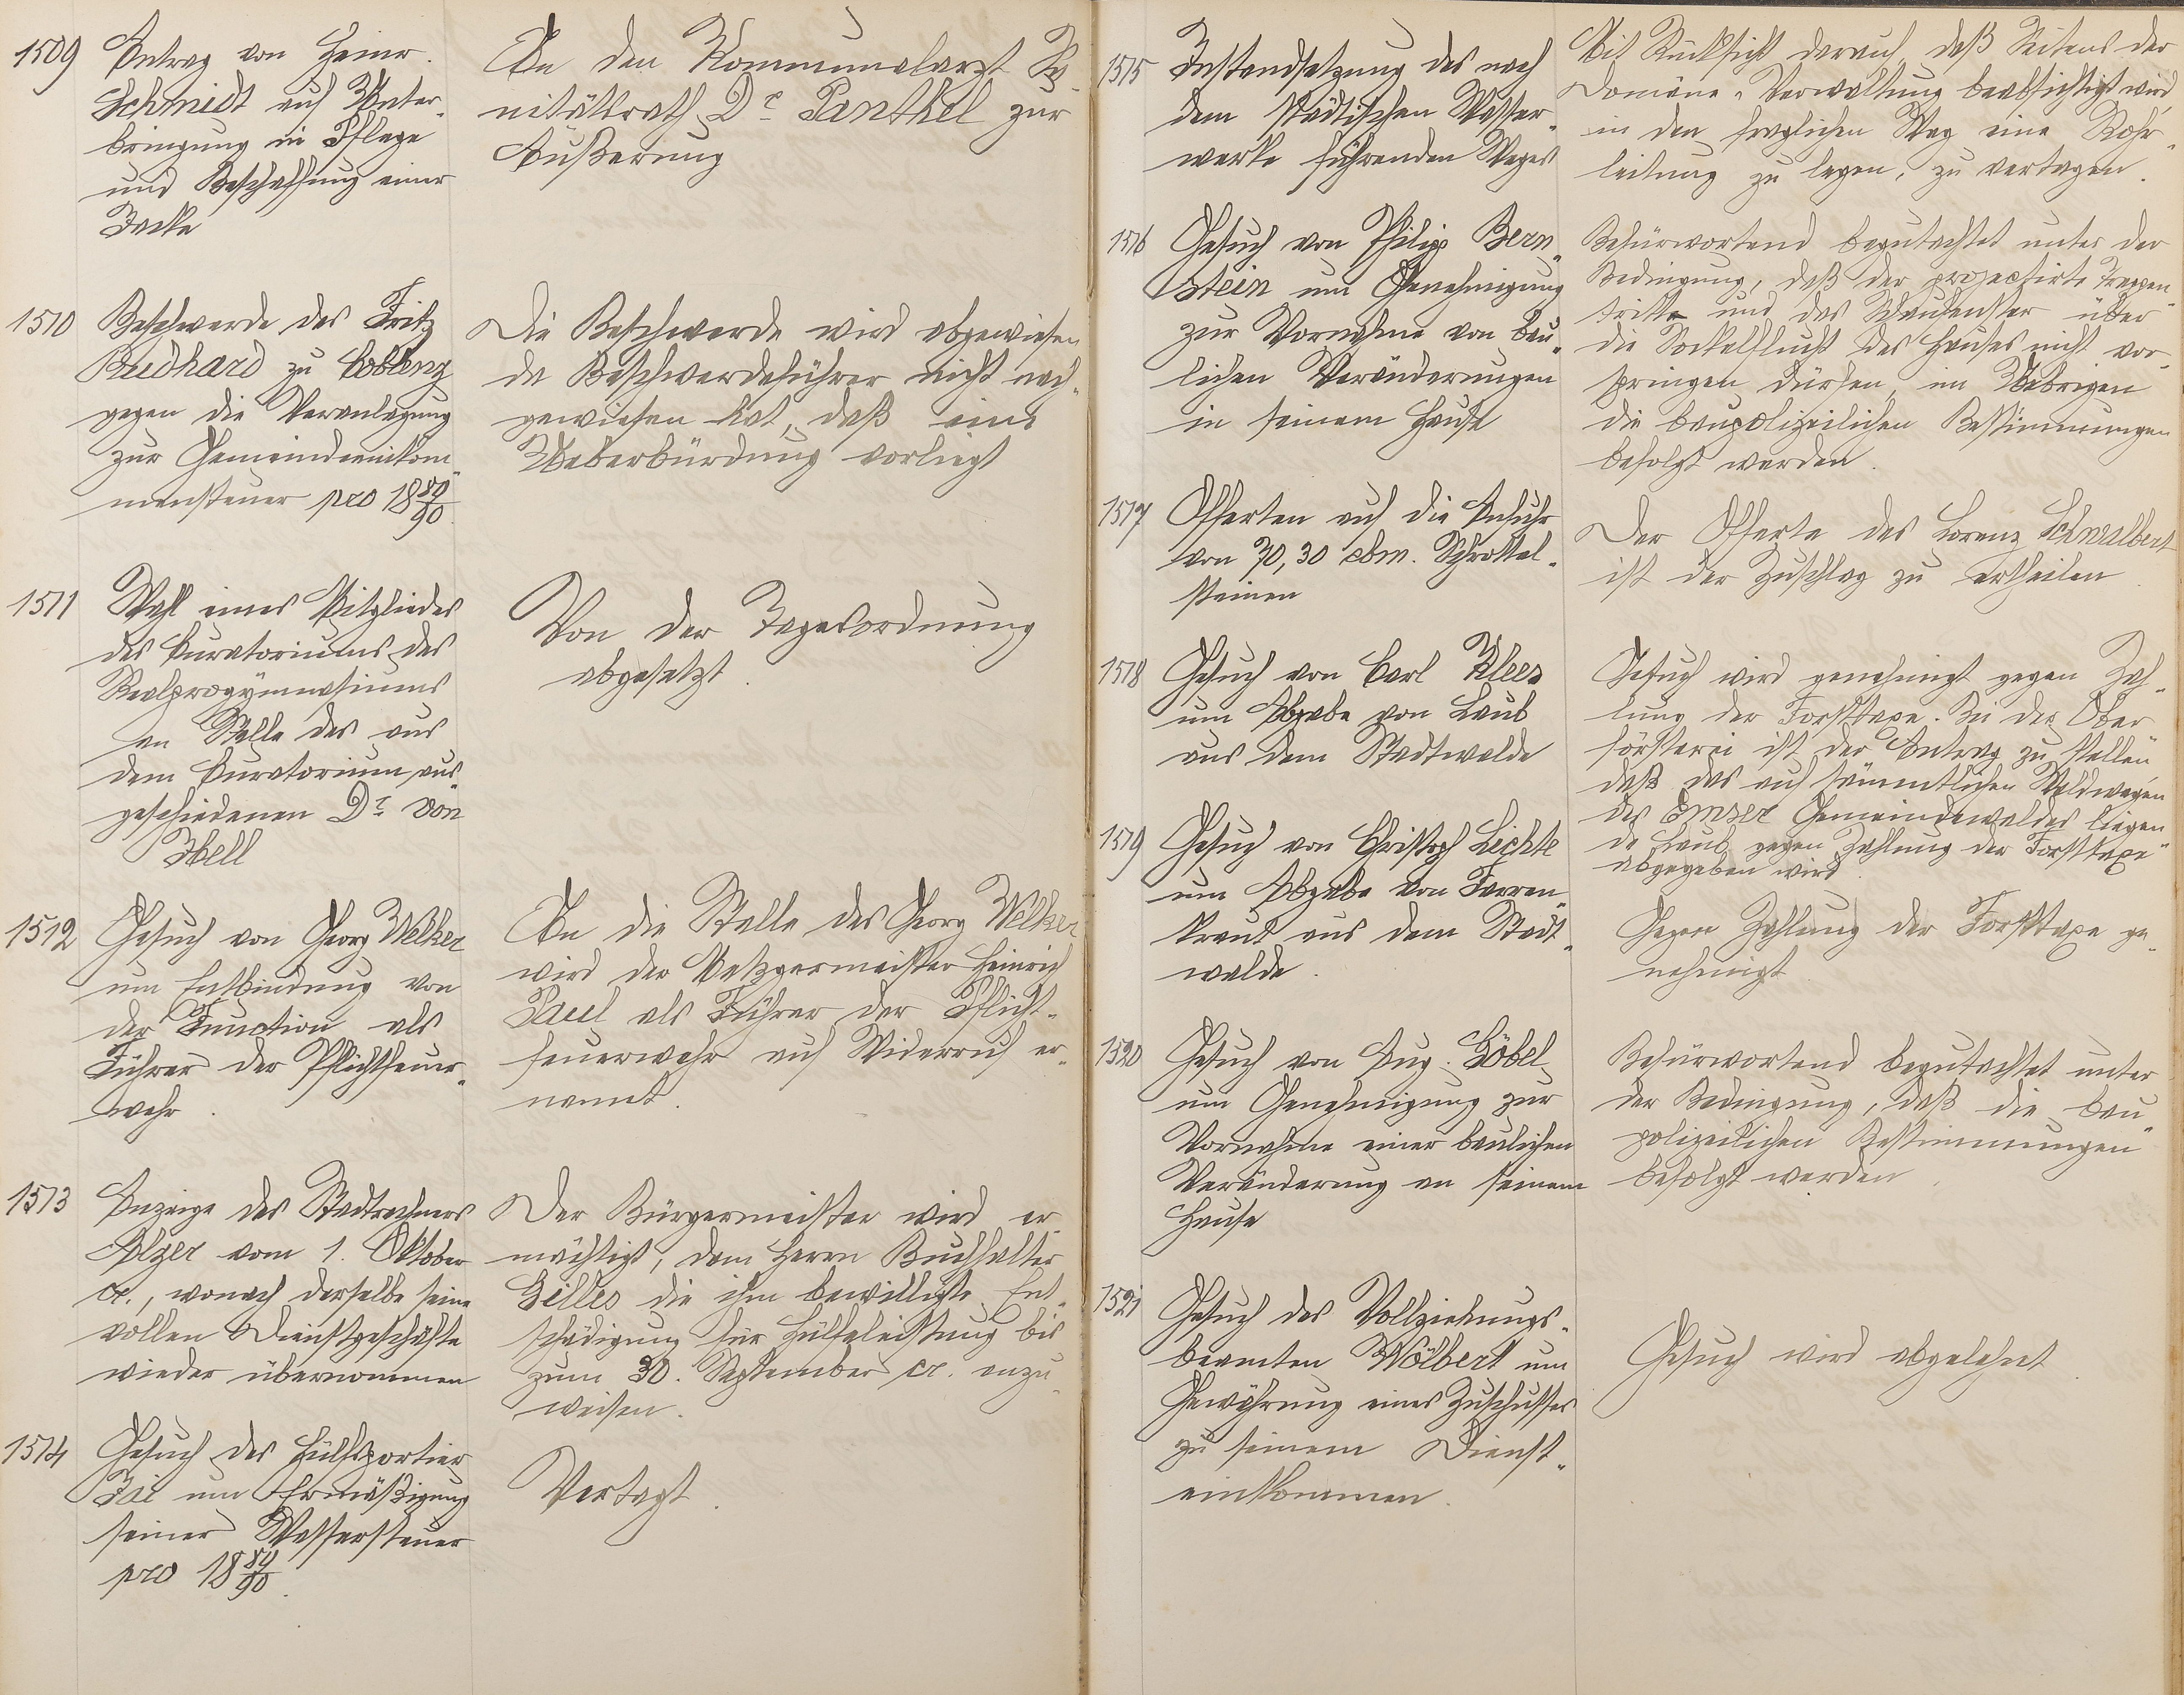 1509 Antrag von Heinr.
Schmidt auf Unter-
bringung in Pflege
und Beschaffung einer
Jacke
An den Kommunalarzt Sa-
nitätsrath Dr. Panthel zur
Äußerung
1510 Beschwerde des Fritz
Budhard zu Coblenz
gegen die Veranlagung
zur Gemeindeeinkom-
mensteuer pro 1889/90.
Die Beschwerde wird abgewiesen
da Beschwerdeführer nicht nach-
gewiesen hat, daß eine
Ueberbürdung vorliegt
1511 Wahl eines Mitgliedes
des Curatoriums des
Realprogymnasiums
an Stelle des aus
dem Curatorium aus-
geschiedenen Dr. von
Ibell
Von der Tagesordnung
abgesetzt.
1512 Gesuch von Georg Welker
um Entbindung von
der Function als
Führer der Pflichtfeuer-
wehr.
An die Stelle des Georg Welker
wird der Metzgermeister Heinrich
Paul als Führer der Pflicht-
feuerwehr auf Widerruf er-
nannt.
1513 Anzeige des Stadtrechners
Polzer vom 1. Oktober
cr., wonach derselbe seine
vollen Dienstgeschäfte
wieder übernommen
Der Bürgermeister wird er-
mächtigt, dem Herrn Buchhalter
Gilles die ihm bewilligte Ent-
schädigung für Hülfeleistung bis
zum 30. September cr. anzu-
weisen.
1514 Gesuch des Hülfsportier
Bai um Ermäßigung
seiner Wassersteuer
pro 1889/90.
Vertagt.
1515 Instandsetzung des nach
dem städtischen Wasser-
werke führenden Weges
Mit Rücksicht darauf, daß Seitens der
Domäne-Verwaltung beabsichtigt wird,
in den fraglichen Weg eine Rohr-
leitung zu legen, zu vertagen.
1516 Gesuch von Philipp Bern-
stein um Genehmigung
zur Vornahme von bau-
lichen Veränderungen
in seinem Hause
Befürwortend begutachtet unter der
Bedingung, daß der projectirte Treppen-
tritt und das Schaufenster über
die Sockelflucht des Hauses nicht vor-
springen dürfen, im Uebrigen
die baupolizeilichen Bestimmungen
befolgt werden.
1517 Offerten auf die Anfuhr
von 70,30 cbm. Schrottel-
steinen
Der Offerte des Lorenz Schwalbert
ist der Zuschlag zu ertheilen.
1518 Gesuch von Carl Klees
um Abgabe von Laub
aus dem Stadtwalde
Gesuch wird genehmigt gegen Zah-
lung der Forsttaxe. Bei der Ober-
försterei ist der Antrag zu stellen
daß das auf sämmtlichen Waldwegen
des Emser Gemeindewaldes liegen-
de Laub gegen Zahlung der Forsttaxe
abgegeben wird.
1519 Gesuch von Christoph Lichte
um Abgabe von Farren-
kraut aus dem Stadt-
walde.
Gegen Zahlung der Forsttaxe ge-
nehmigt.
1520 Gesuch von Aug. Göbel
um Genehmigung zur
Vornahme einer baulichen
Veränderung an seinem
Hause
Befürwortend begutachtet unter
der Bedingung, daß die bau-
polizeilichen Bestimmungen
befolgt werden.
1521 Gesuch des Vollziehungs-
beamten Wölbert um
Gewährung eines Zuschusses
zu seinem Dienst-
einkommen.
Gesuch wird abgelehnt.